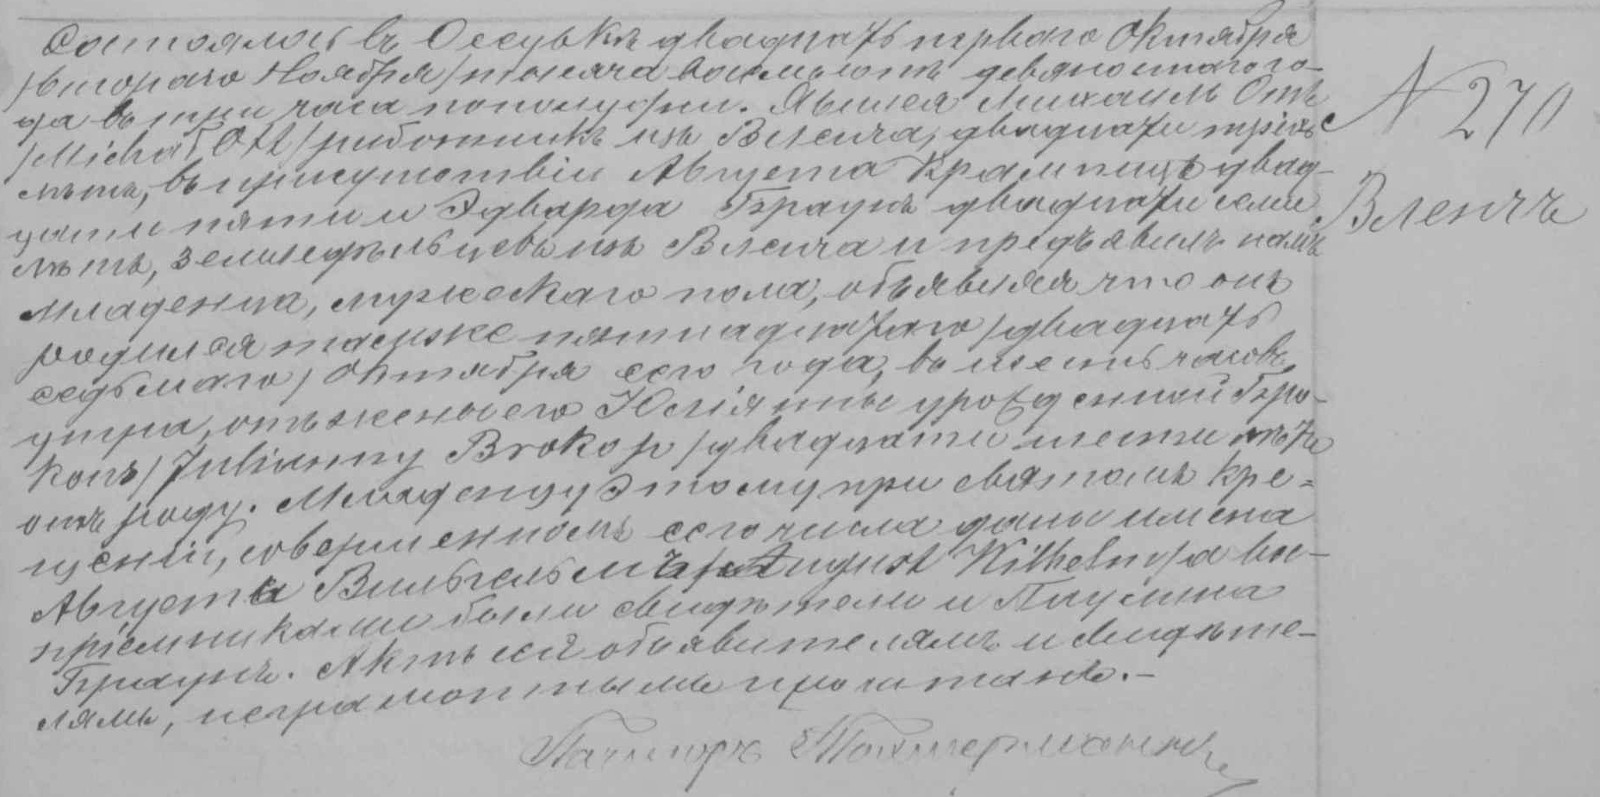 Состоялось въ Оссувкѣ двадцать перваго Октября
/втораго Ноября/ тысяча восемьсотъ девяностаго го-
да въ три часа пополудни. Явился Михаилъ Оттъ
/Michał Ott/ работникъ изъ Вленча, двадцати трехъ
лѣтъ, въ присутствіи Августа Крампицъ двад-
цати пяти и Эдварда Браунъ двадцати семи
лѣтъ, земледѣльцевъ изъ Вленча и предъявилъ намъ
младенца, мужескаго пола, объявляя что онъ
родился тамже пятнадцатаго /двадцать
седьмаго/ Октября сего года, въ шесть часовъ
утра, отъ жены его Юліянны урожденной Бро-
копъ /Julianny Brokop/ двадцати шести лѣтъ
отъ роду. Младенцу этому при святомъ кре-
щеніи, совершенномъ сего числа даны имена
Августъ Вильгельмъ /August Wilhelm/ а вос-
пріемниками были свидѣтели и Паулина
Браунъ. Актъ сей объявителямъ и свидѣте-
лямъ, неграмотнымъ прочитанъ.-
Пасторъ
N 270
Вленчъ